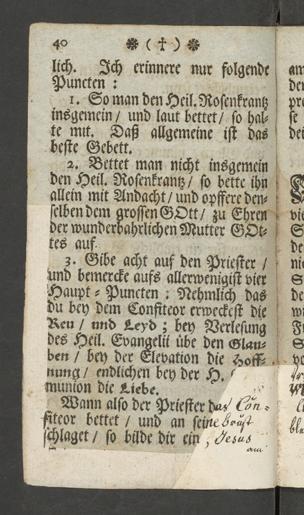 40 ❋ ( † ) ❋
lich. Ich erinnere nur folgende
Puncten :
1. So man den Heil. Rosenkrantz
insgemein / und laut bettet / so hal-
te mit. Daß allgemeine ist das
beste Gebett.
2. Bettet man nicht insgemein
den Heil. Rosenkrantz / so bette ihn
allein mit Andacht / und opffere den-
selben dem grossen GOtt / zu Ehren
der wunderbahrlichen Mutter GOt-
tes auf.
3. Gibe acht auf den Priester /
und bemercke aufs allerwenigist vier
Haupt-Puncten : Nehmlich das
du bey dem Confiteor erweckest die
Reu / und Leyd ; bey Verlesung
des Heil. Evangelii übe den Glau-
ben / bey der Elevation die Hoff-
nung / endlichen bey der H.
munion die Liebe.
Wann also der Priester das Con-
fiteor bettet / und an seine brust
schlaget / so bilde dir ein, Jesus
am